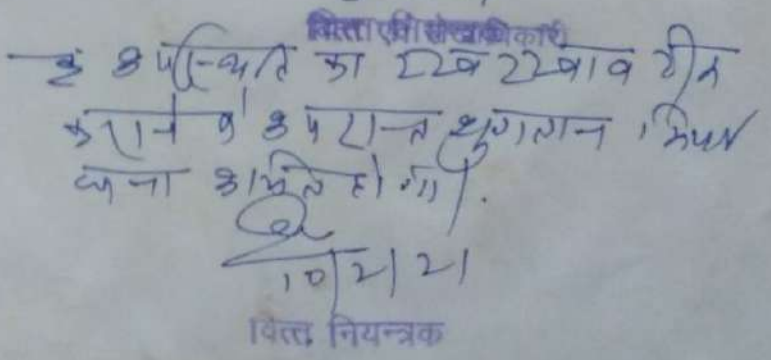 वित्त एवं लेखाधिकारी
उपस्थिति का रख रखाव ठीक
कराने के उपरान्त भुगतान किया
जाना उचित होगा।
10/2/21
वित्त नियन्त्रक